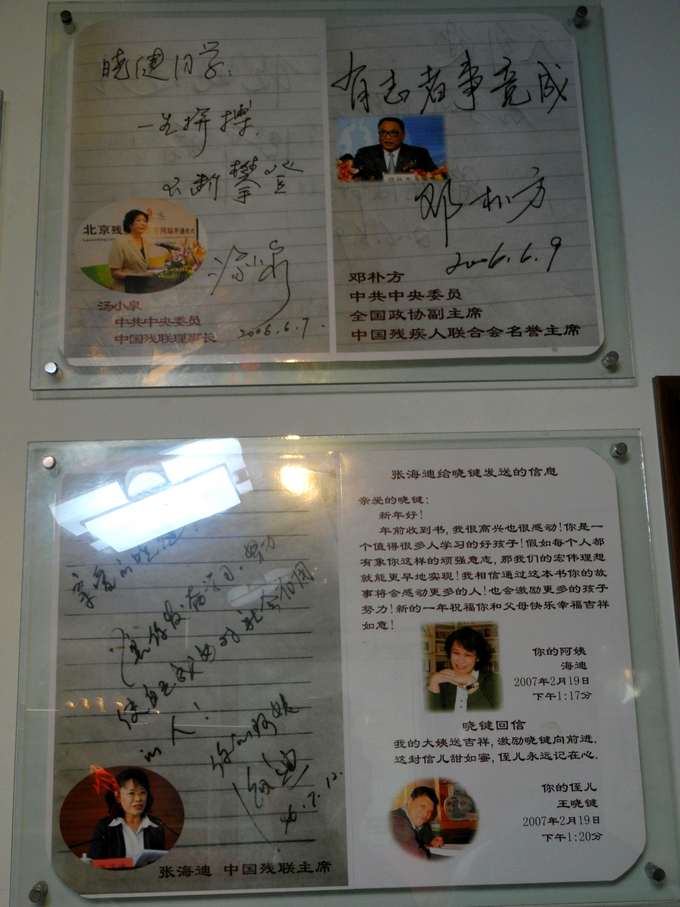 晓健同学:
一生拼搏,
不断攀登
汤小泉
2006.6.7.
北京残
汤小泉
中共中央委员
中国残联理事长
有志者事竟成
邓朴方
2006.6.9
邓朴方
中共中央委员
全国政协副主席
中国残疾人联合会名誉主席
亲爱的晓键:
努力
使自己成为对社会有用
的人!
你的阿姨
海迪
张海迪 中国残联主席
张海迪给晓键发送的信息
亲爱的晓键:
新年好!
年前收到书,我很高兴也很感动!你是一
个值得很多人学习的好孩子!假如每个人都
有象你这样的顽强意志,那我们的宏伟理想
就能更早地实现!我相信通过这本书你的故
事将会感动更多的人!也会激励更多的孩子
努力!新的一年祝福你和父母快乐幸福吉祥
如意!
你的阿姨
海迪
2007年2月19日
下午1:17分
晓键回信
我的大姨送吉祥,激励晓键向前进.
这封信儿甜如蜜,侄儿永远记在心.
你的侄儿
王晓键
2007年2月19日
下午1:20分